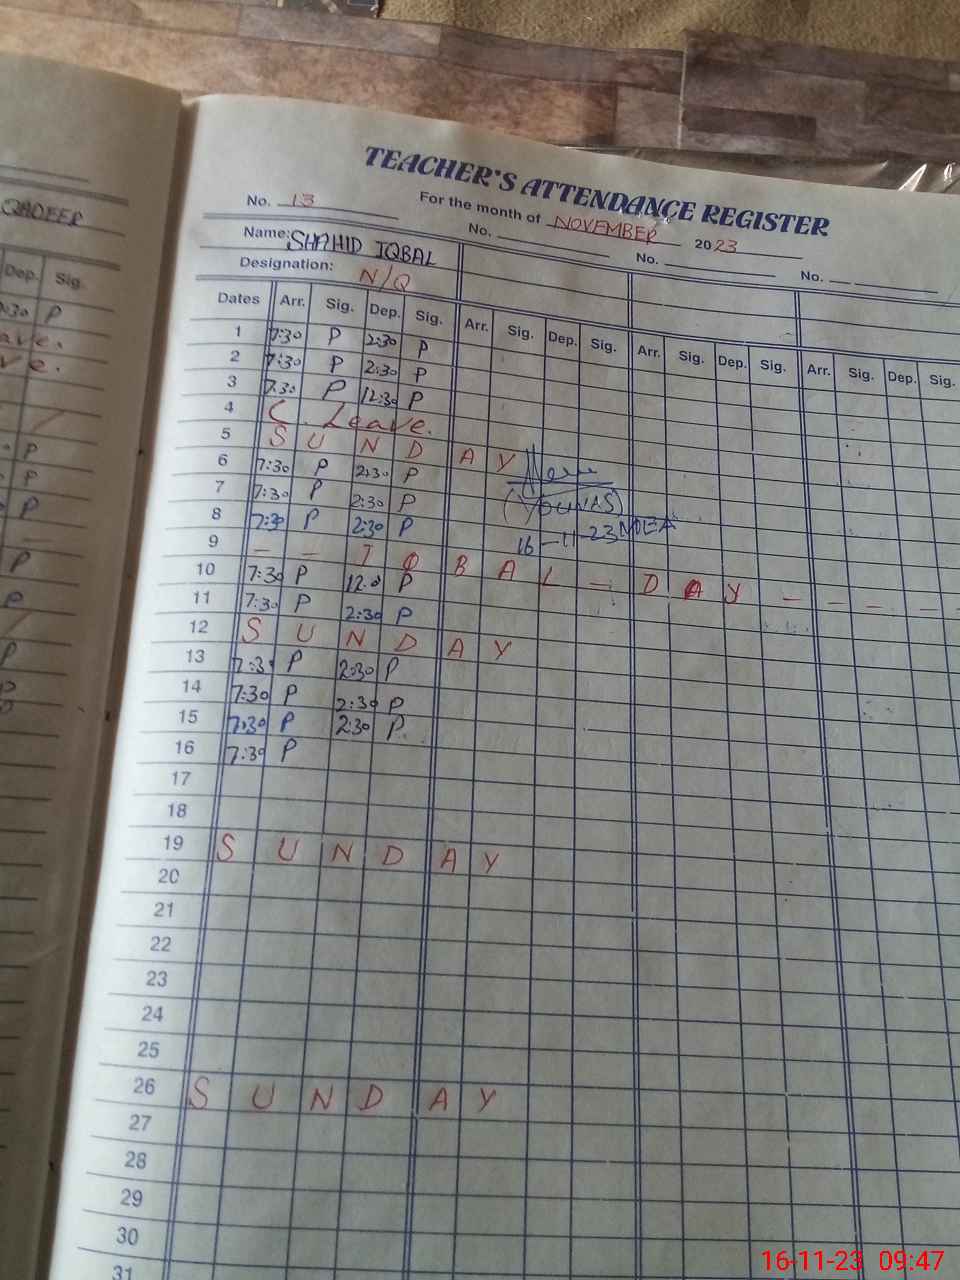 TEACHER'S ATTENDANCE REGISTER
For the month of NOVEMBER 2023
No. 13 No. No. No.
QADEER
Name: SHAHID IQBAL
Designation: N/Q
Dep. Sig.
Dates Arr. Sig. Dep. Sig. Arr. Sig. Dep. Sig. Arr. Sig. Dep. Sig. Arr. Sig. Dep. Sig.
1 7:30 P 2:30 P
2 7:30 P 2:30 P
3 7:30 P 12:30 P
4 C. Leave.
5 S U N D A Y
6 7:30 P 2:30 P
7 7:30 P 2:30 P
(YOUNAS)
8 7:30 P 2:30 P
16-11-23 MEA
9 – – I Q B A L – D A Y – – – –
10 7:30 P 12:0 P
11 7:30 P 2:30 P
12 S U N D A Y
13 7:30 P 2:30 P
14 7:30 P 2:30 P
15 7:30 P 2:30 P.
16 7:30 P
17
18
19 S U N D A Y
20
21
22
23
24
25
26 S U N D A Y
27
28
29
30
31
16-11-23 09:47